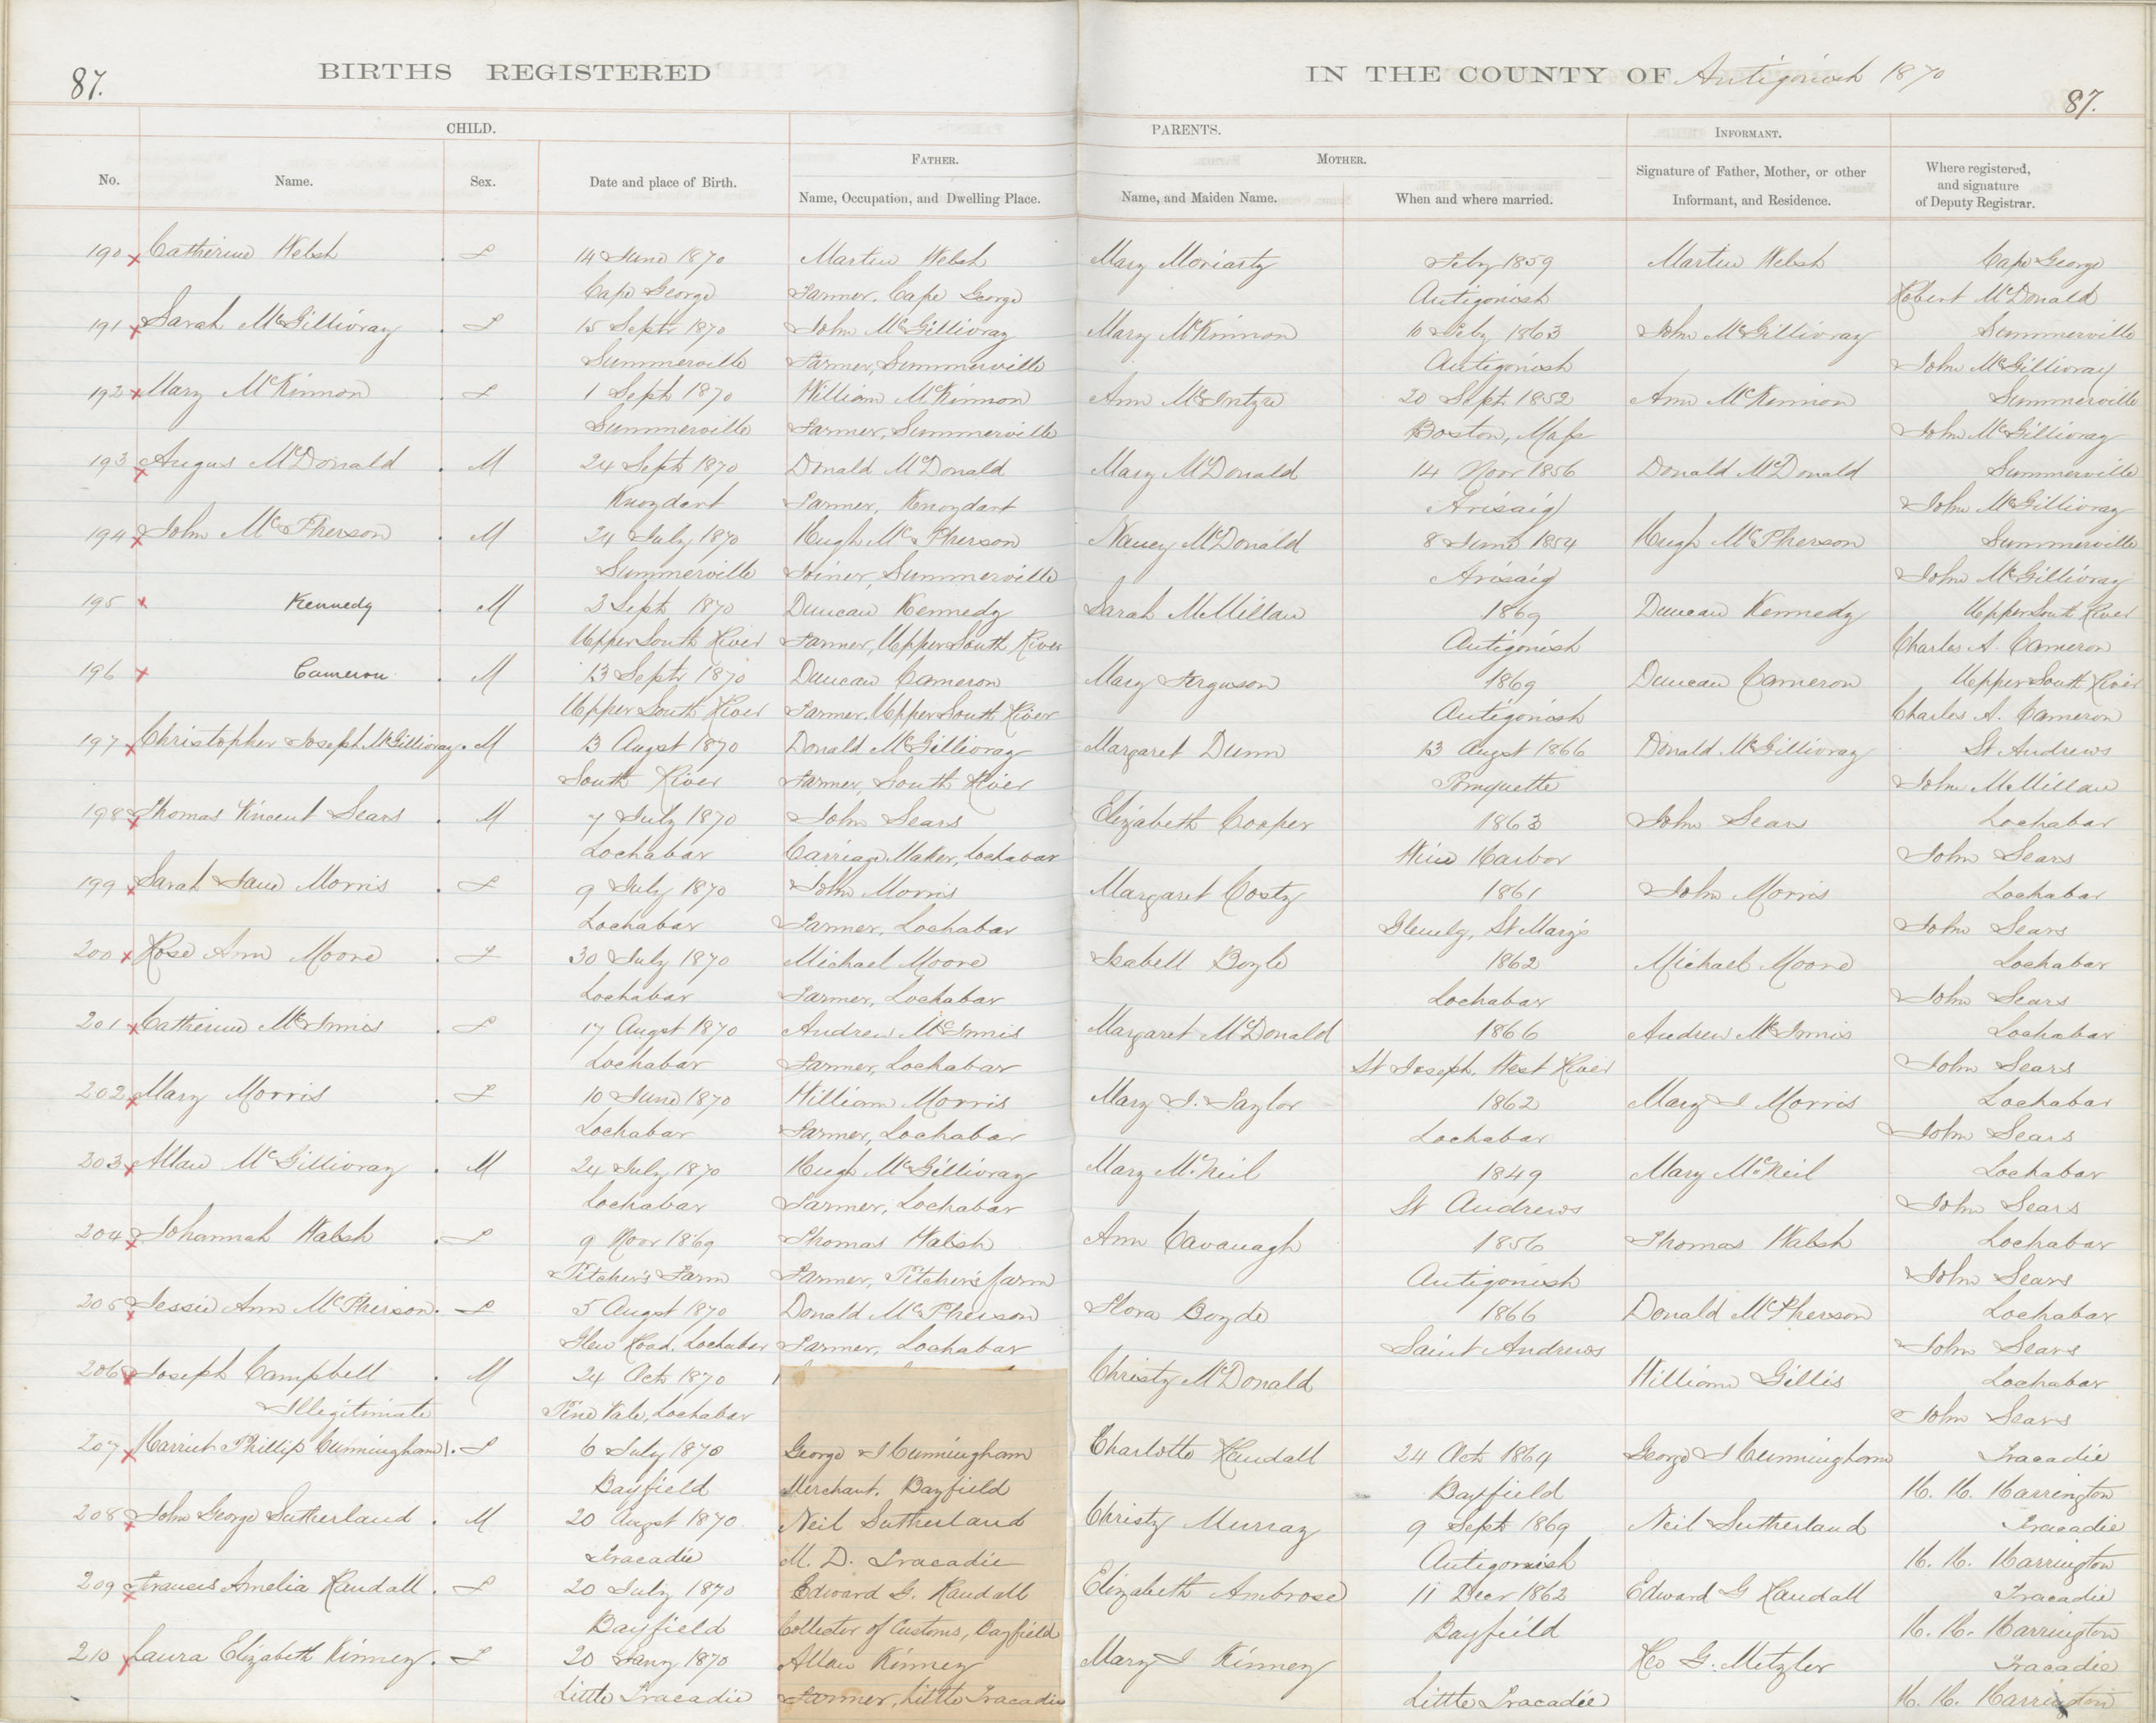 87.
BIRTHS REGISTERED
IN THE COUNTY OF Antigonish 1870
87.
CHILD.
PARENTS.
INFORMANT.
FATHER.
MOTHER.
No.
Name.
Sex.
Date and place of Birth.
Name, Occupation, and Dwelling Place.
Name, and Maiden Name.
When and where married.
Signature of Father, Mother, or other
Informant, and Residence.
Where registered,
and signature
of Deputy Registrar.
190 Catherine Welsh . F 14 June 1870 Martin Welsh Mary Moriarty Feby 1859 Martin Welsh Cape George
Cape George Farmer, Cape George Antigonish Robert McDonald
191 Sarah McGillivray . F 15 Septr 1870 John McGillivray Mary McKinnon 10 Feby 1863 John McGillivray Summerville
Summerville Farmer, Summerville Antigonish John McGillivray
192 Mary McKinnon . F 1 Sept 1870 William McKinnon Ann McIntyre 20 Sept 1852 Ann McKinnon Summerville
Summerville Farmer, Summerville Boston, Mass John McGillivray
193 Angus McDonald . M 24 Sept 1870 Donald McDonald Mary McDonald 14 Novr 1856 Donald McDonald Summerville
Knoydart Farmer, Knoydart Arisaig John McGillivray
194 John McPherson . M 24 July 1870 Hugh McPherson Nancy McDonald 8 June 1854 Hugh McPherson Summerville
Summerville Joiner, Summerville Arisaig John McGillivray
195 Kennedy . M 3 Sept 1870 Duncan Kennedy Sarah McMillan 1869 Duncan Kennedy Upper South River
Upper South River Farmer, Upper South River Antigonish Charles A. Cameron
196 Cameron . M 13 Septr 1870 Duncan Cameron Mary Ferguson 1869 Duncan Cameron Upper South River
Upper South River Farmer, Upper South River Antigonish Charles A. Cameron
197 Christopher Joseph McGillivray . M 13 Augst 1870 Donald McGillivray Margaret Dunn 13 Augst 1866 Donald McGillivray St Andrews
South River Farmer, South River Pomquette John McMillan
198 Thomas Vincent Sears . M 7 July 1870 John Sears Elizabeth Cooper 1863 John Sears Lochabar
Lochabar Carriage Maker, Lochabar Wine Harbor John Sears
199 Sarah Jane Morris . F 9 July 1870 John Morris Margaret Costy 1861 John Morris Lochabar
Lochabar Farmer, Lochabar Glenelg, St Mary's John Sears
200 Rose Ann Moore . F 30 July 1870 Michael Moore Isabell Boyle 1862 Michael Moore Lochabar
Lochabar Farmer, Lochabar Lochabar John Sears
201 Catherine McInnis . F 17 Augst 1870 Andrew McInnis Margaret McDonald 1866 Andrew McInnis Lochabar
Lochabar Farmer, Lochabar St Joseph, West River John Sears
202 Mary Morris . F 10 June 1870 William Morris Mary J. Taylor 1862 Mary J Morris Lochabar
Lochabar Farmer, Lochabar Lochabar John Sears
203 Allan McGillivray . M 24 July 1870 Hugh McGillivray Mary McNeil 1849 Mary McNeil Lochabar
Lochabar Farmer, Lochabar St Andrews John Sears
204 Johannah Walsh . F 9 Novr 1869 Thomas Walsh Ann Cavanagh 1856 Thomas Walsh Lochabar
Pitcher's Farm Farmer, Pitcher's farm Antigonish John Sears
205 Jessie Ann McPherson . F 5 Augst 1870 Donald McPherson Flora Boyde 1866 Donald McPherson Lochabar
Glen Road, Lochabar Farmer, Lochabar Saint Andrews John Sears
206 Joseph Campbell . M 24 Oct 1870 Christy McDonald William Gillis Lochabar
Illegitimate Pine Vale, Lochabar John Sears
207 Harriet Phillip Cunningham . F 6 July 1870 George J Cunningham Charlotte Randall 24 Oct 1864 George J Cunningham Tracadie
Bayfield Merchant, Bayfield Bayfield H. H. Harrington
208 John George Sutherland . M 20 Augst 1870 Neil Sutherland Christy Murray 9 Sept 1869 Neil Sutherland Tracadie
Tracadie M. D. Tracadie Antigonish H. H. Harrington
209 Francis Amelia Randall . F 20 July 1870 Edward G. Randall Elizabeth Ambrose 11 Decr 1862 Edward G Randall Tracadie
Bayfield Collector of Customs, Bayfield Bayfield H. H. Harrington
210 Laura Elizabeth Kinney . F 20 Jany 1870 Allan Kinney Mary J Kinney Geo G. Metzler Tracadie
Little Tracadie Farmer, Little Tracadie Little Tracadie H. H. Harrington